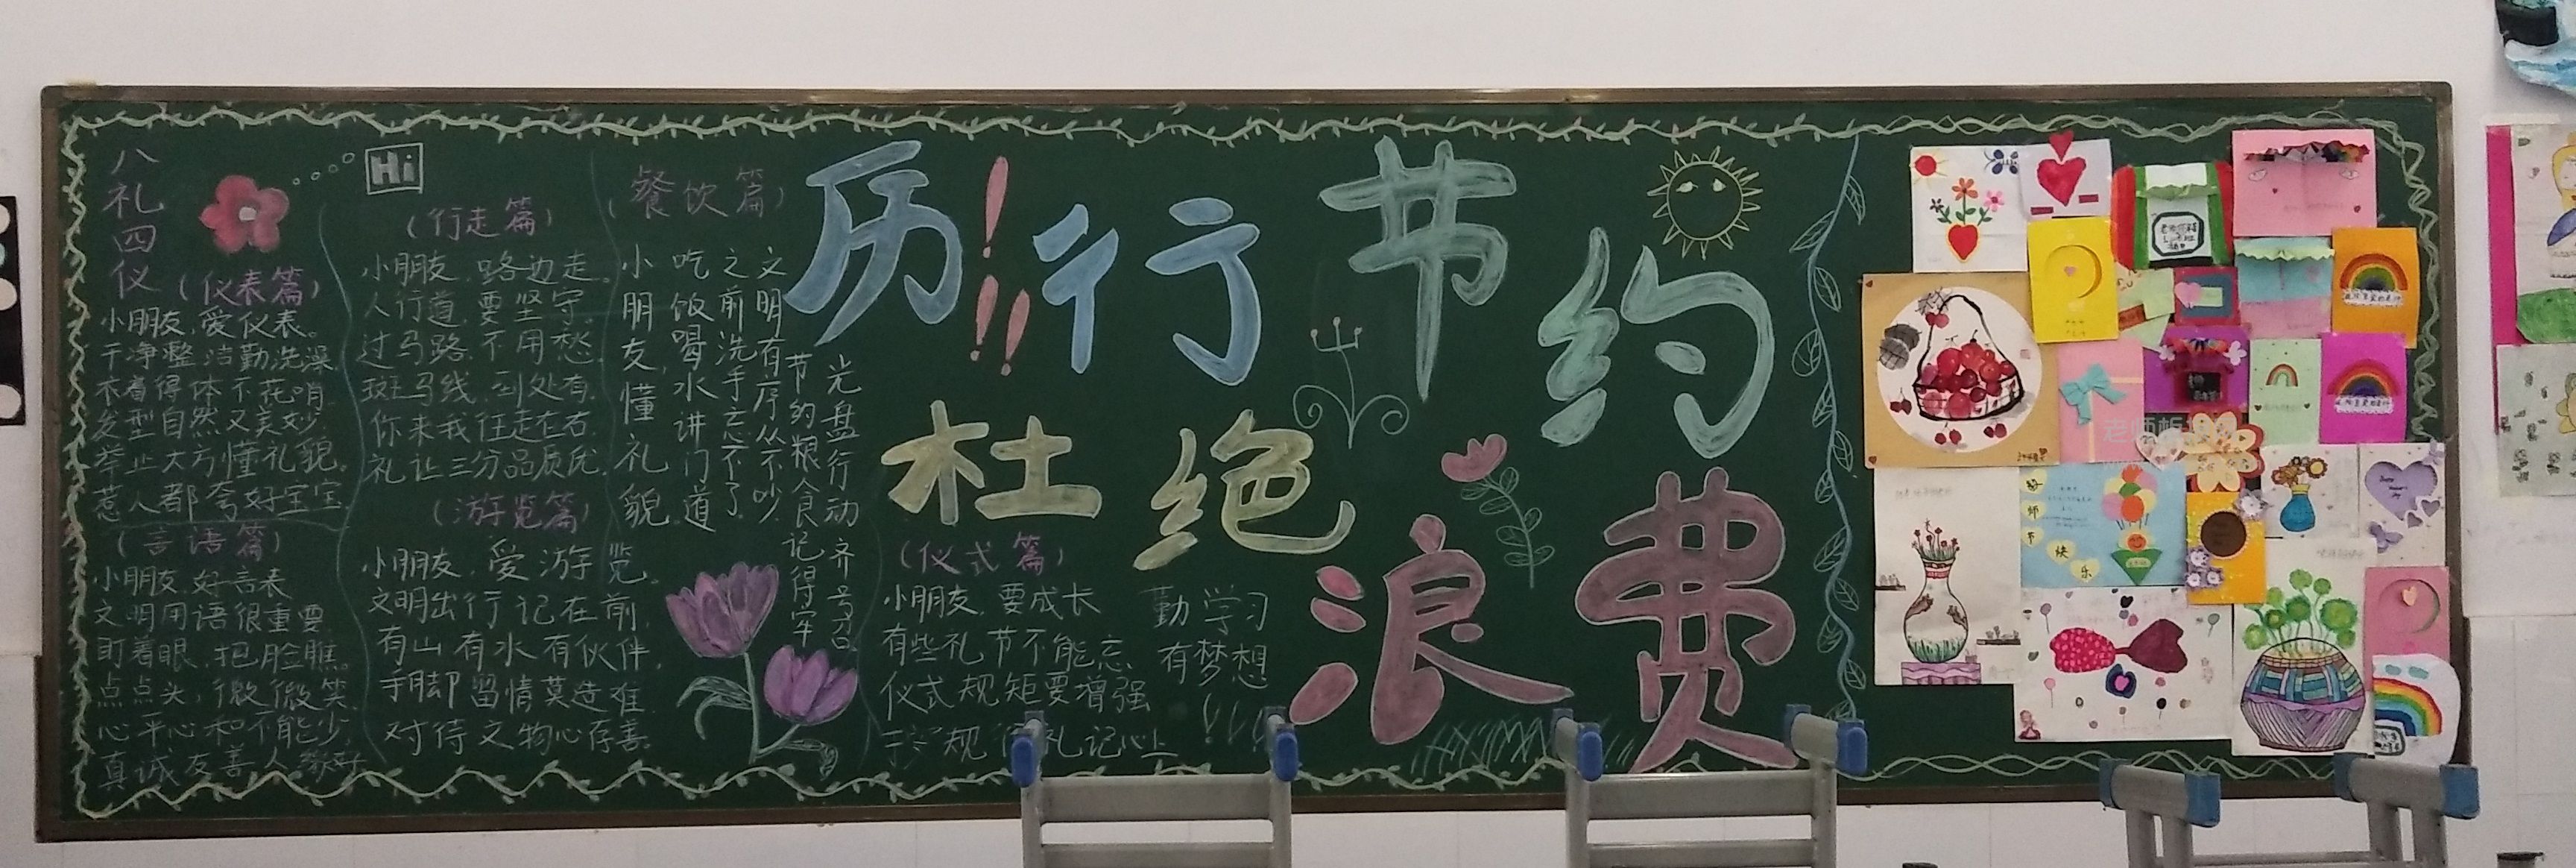 八礼四仪
Hi
(仪表篇)
小朋友,爱仪表。
干净整洁勤洗澡
衣着得体不花哨
发型自然又美妙
举止大方懂礼貌。
惹人都夸好宝宝
(言语篇)
小朋友,好言表
文明用语很重要
盯着眼,把脸瞧。
点点头,微微笑
心平心和不能少
真诚友善人缘好
(行走篇)
小朋友,路边走。
人行道,要坚守。
过马路,不用愁
斑马线,到处有
你来我往走在右
礼让三分品质优
(游览篇)
小朋友,爱游览。
文明出行记在前,
有山有水有伙伴,
手脚留情莫造难
对待文物心存善
(餐饮篇)
小朋友,懂礼貌
吃饭喝水讲门道
之前洗手忘不了
文明有序从不吵
节约粮食记得牢
光盘行动齐号召。
历行节约
杜绝浪费
(仪式篇)
小朋友,要成长
有些礼节不能忘
仪式规矩要增强
勤学习
有梦想
教师节快乐